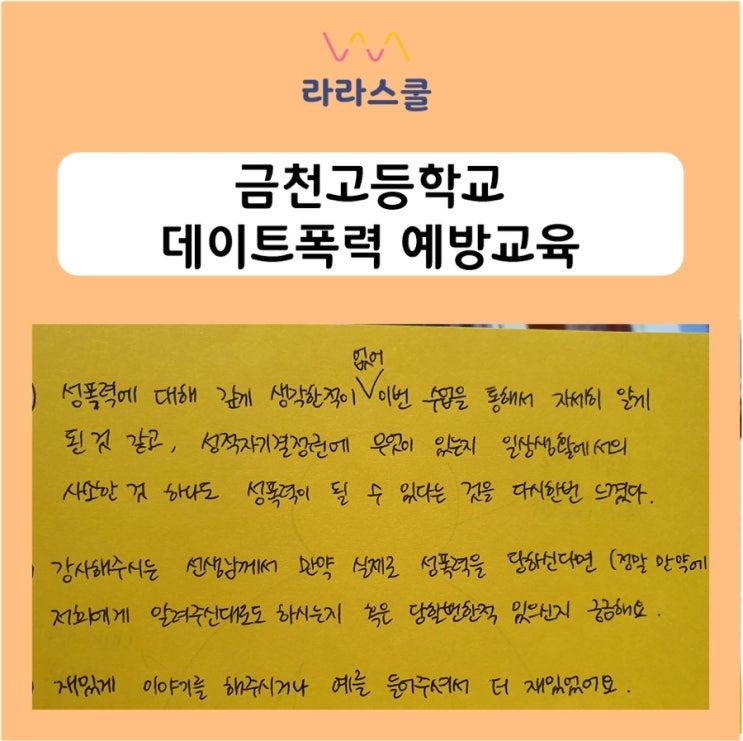 라라스쿨
금천고등학교
데이트폭력 예방교육
없어
) 성폭력에 대해 깊게 생각한적이 ∨ 이번 수업을 통해서 자세히 알게
된 것 같고, 성적자기결정권에 무엇이 있는지 일상생활에서의
사소한 것 하나도 성폭력이 될 수 있다는 것을 다시한번 느꼈다.
) 강사해주시는 선생님께서 만약 실제로 성폭력을 당하신다면 (정말 만약에
저희에게 알려주신대로도 하시는지 혹은 당할뻔한적 있으신지 궁금해요.
) 재밌게 이야기를 해주시거나 예를 들어주셔서 더 재밌었어요.